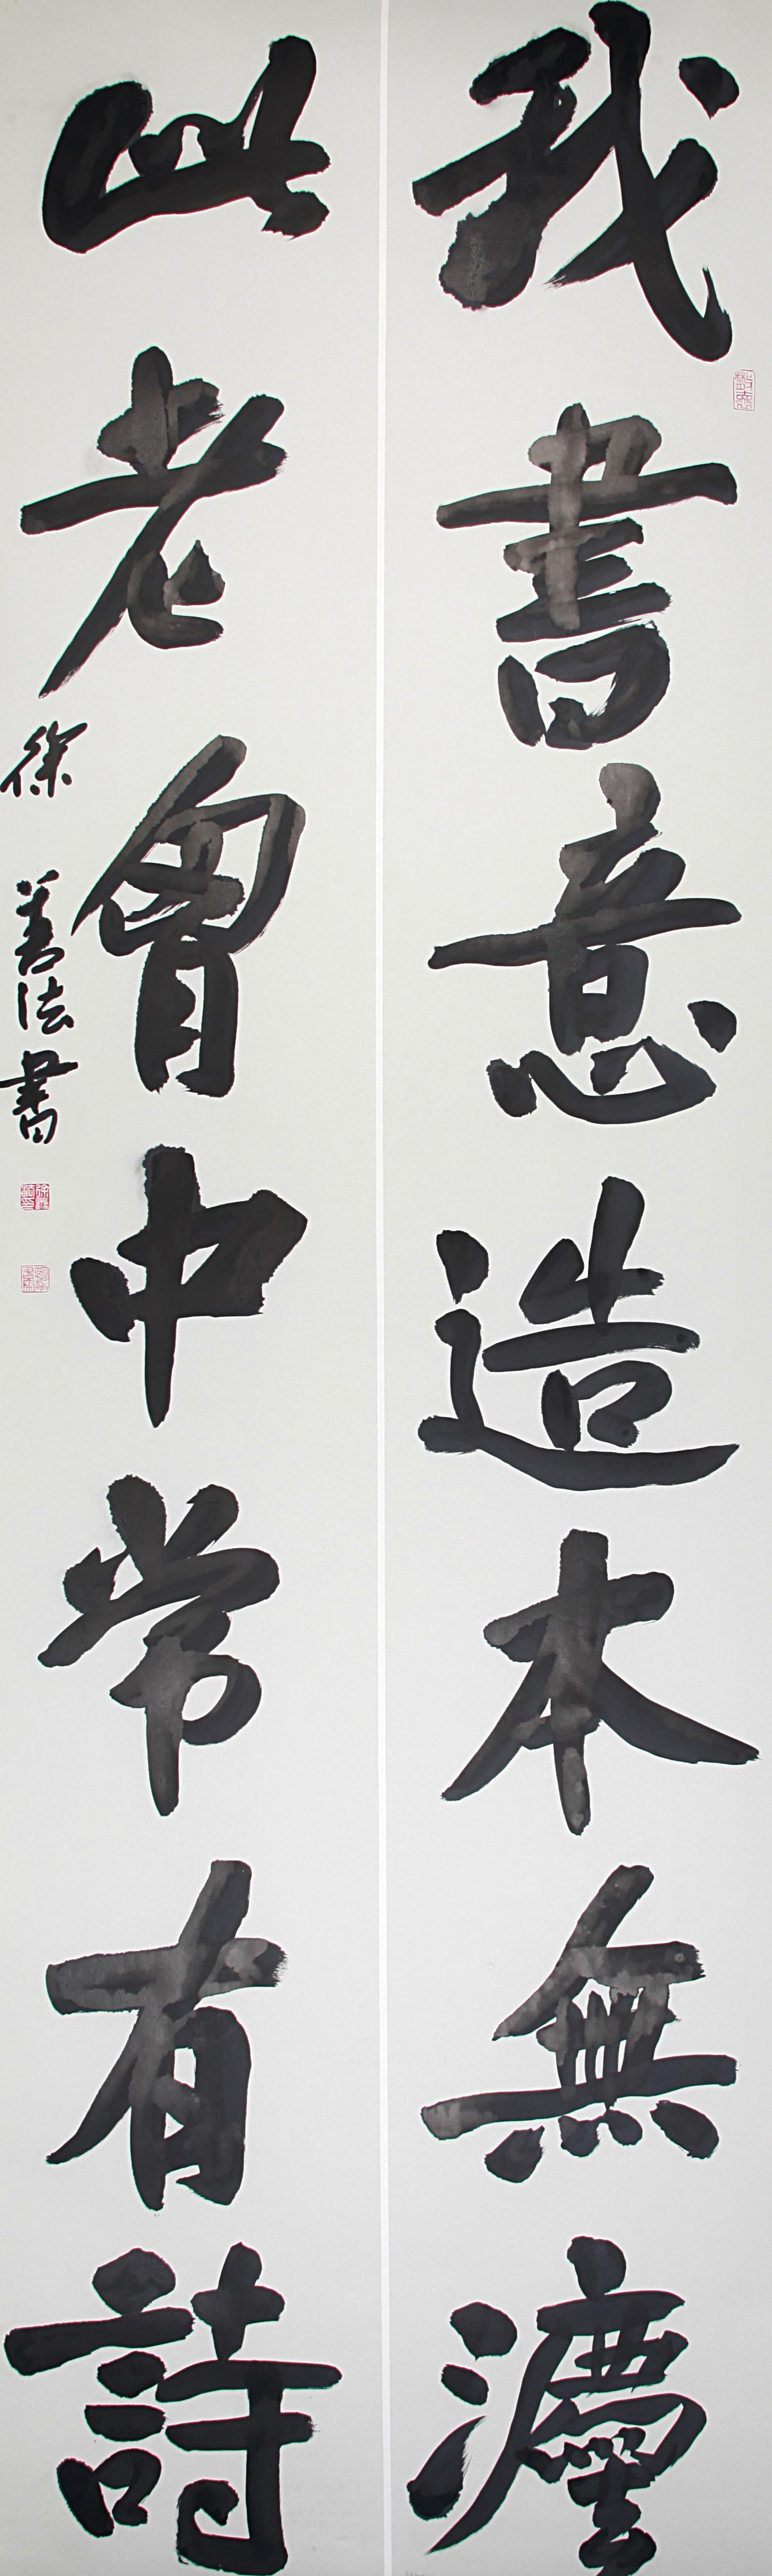 我書意造本無灋
此老胷中常有詩
徐善法書